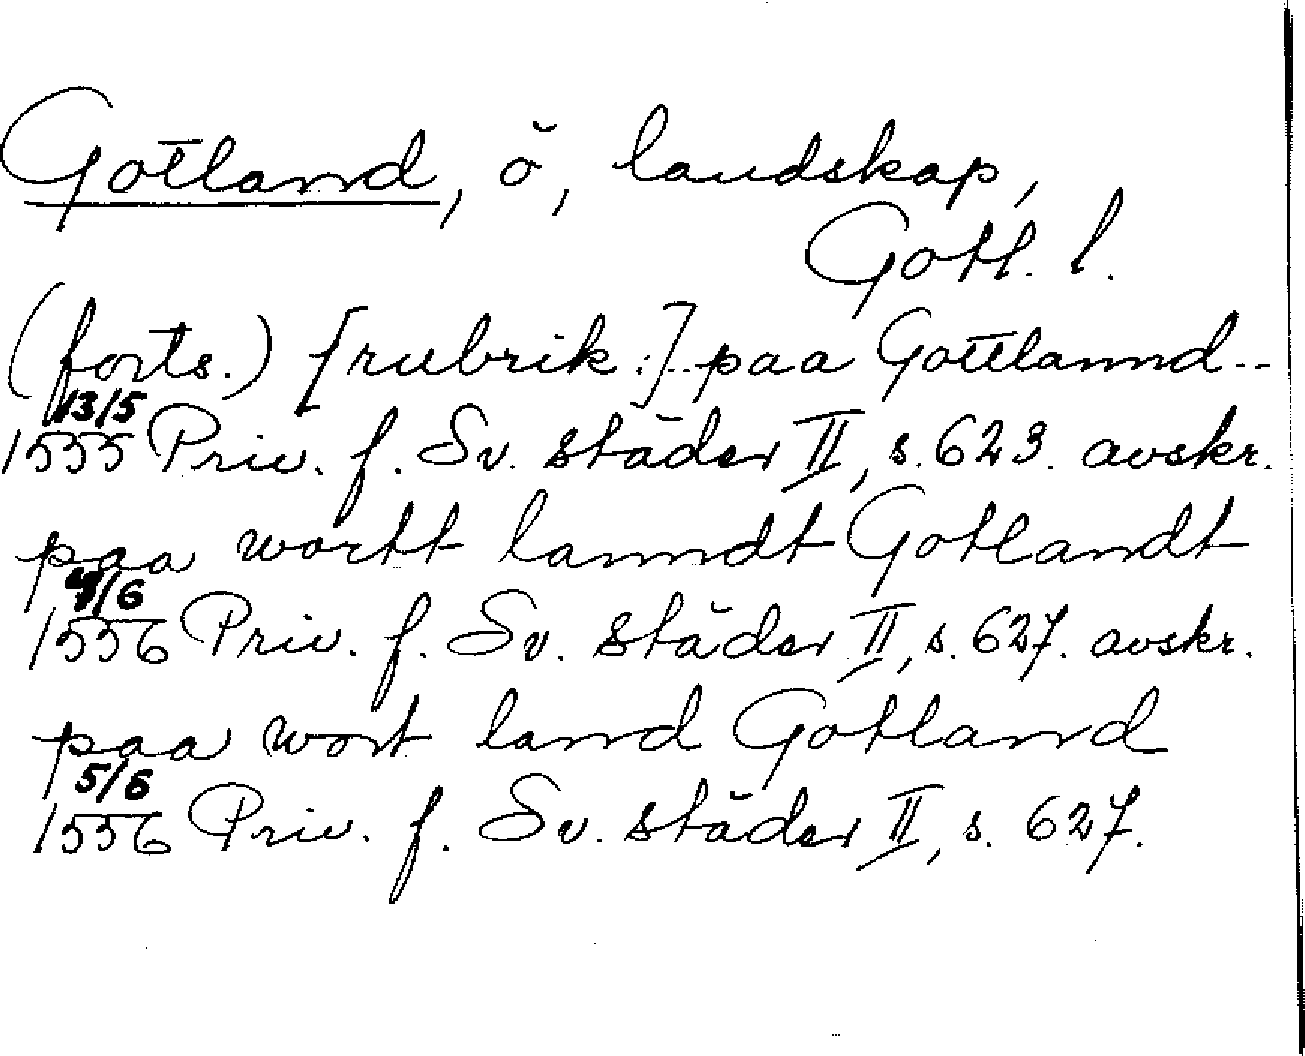 Gotland, ö, landskap,
Gotl. l.
(forts.) [rubrik:].. paa Gottlannd..
13/5
1555 Priv. f. Sv. städer II, s. 623. avskr.
paa wortt lanndt Gotlandt
4/6
1556 Priv. f. Sv. städer II, s. 627. avskr.
paa wort land Gotland
5/6
1556 Priv. f. Sv. städer II, s. 627.